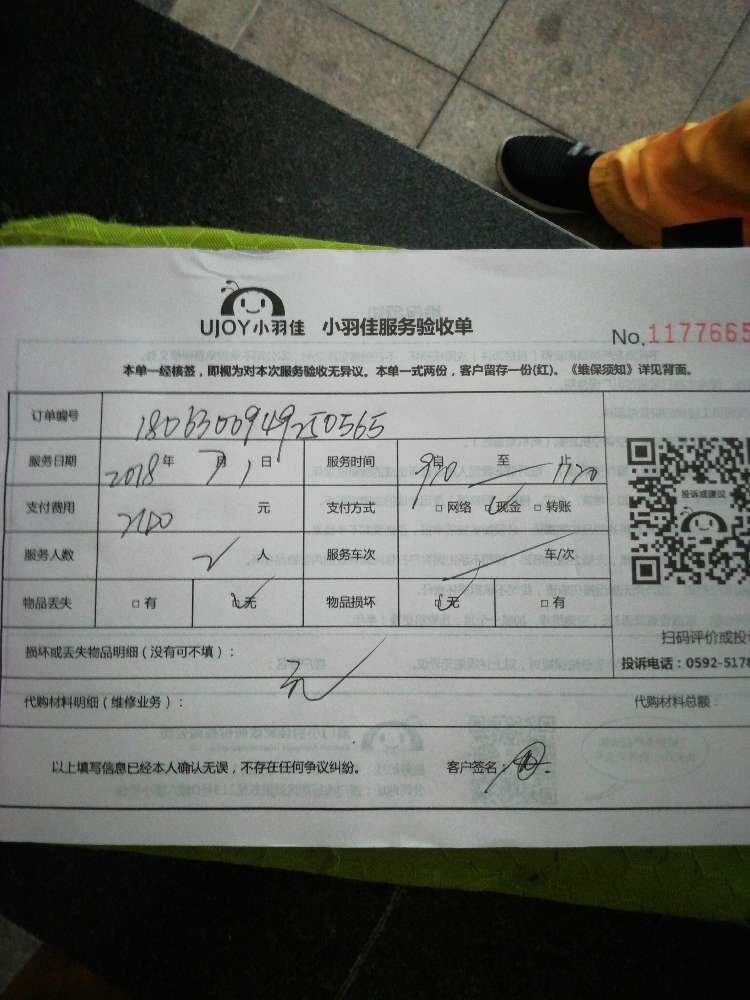 UJOY小羽佳 小羽佳服务验收单
No.1177665
本单一经核签，即视为对本次服务验收无异议。本单一式两份，客户留存一份(红)。《维保须知》详见背面。
订单编号 1806300949250565
服务日期 2018年 7月 1日 服务时间 920自 至 1720止
支付费用 元 支付方式 □网络 □现金 □转账
服务人数 2人 服务车次 车/次
投诉或建议
物品丢失 □有 □无 物品损坏 □无 □有
扫码评价或投
损坏或丢失物品明细（没有可不填）：
投诉电话：0592-5178
无
代购材料明细（维修业务）： 代购材料总额：
以上填写信息已经本人确认无误，不存在任何争议纠纷。 客户签名：